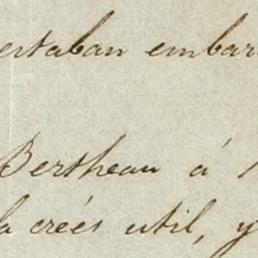 estaban embar
Bertheau á
la creés util, y